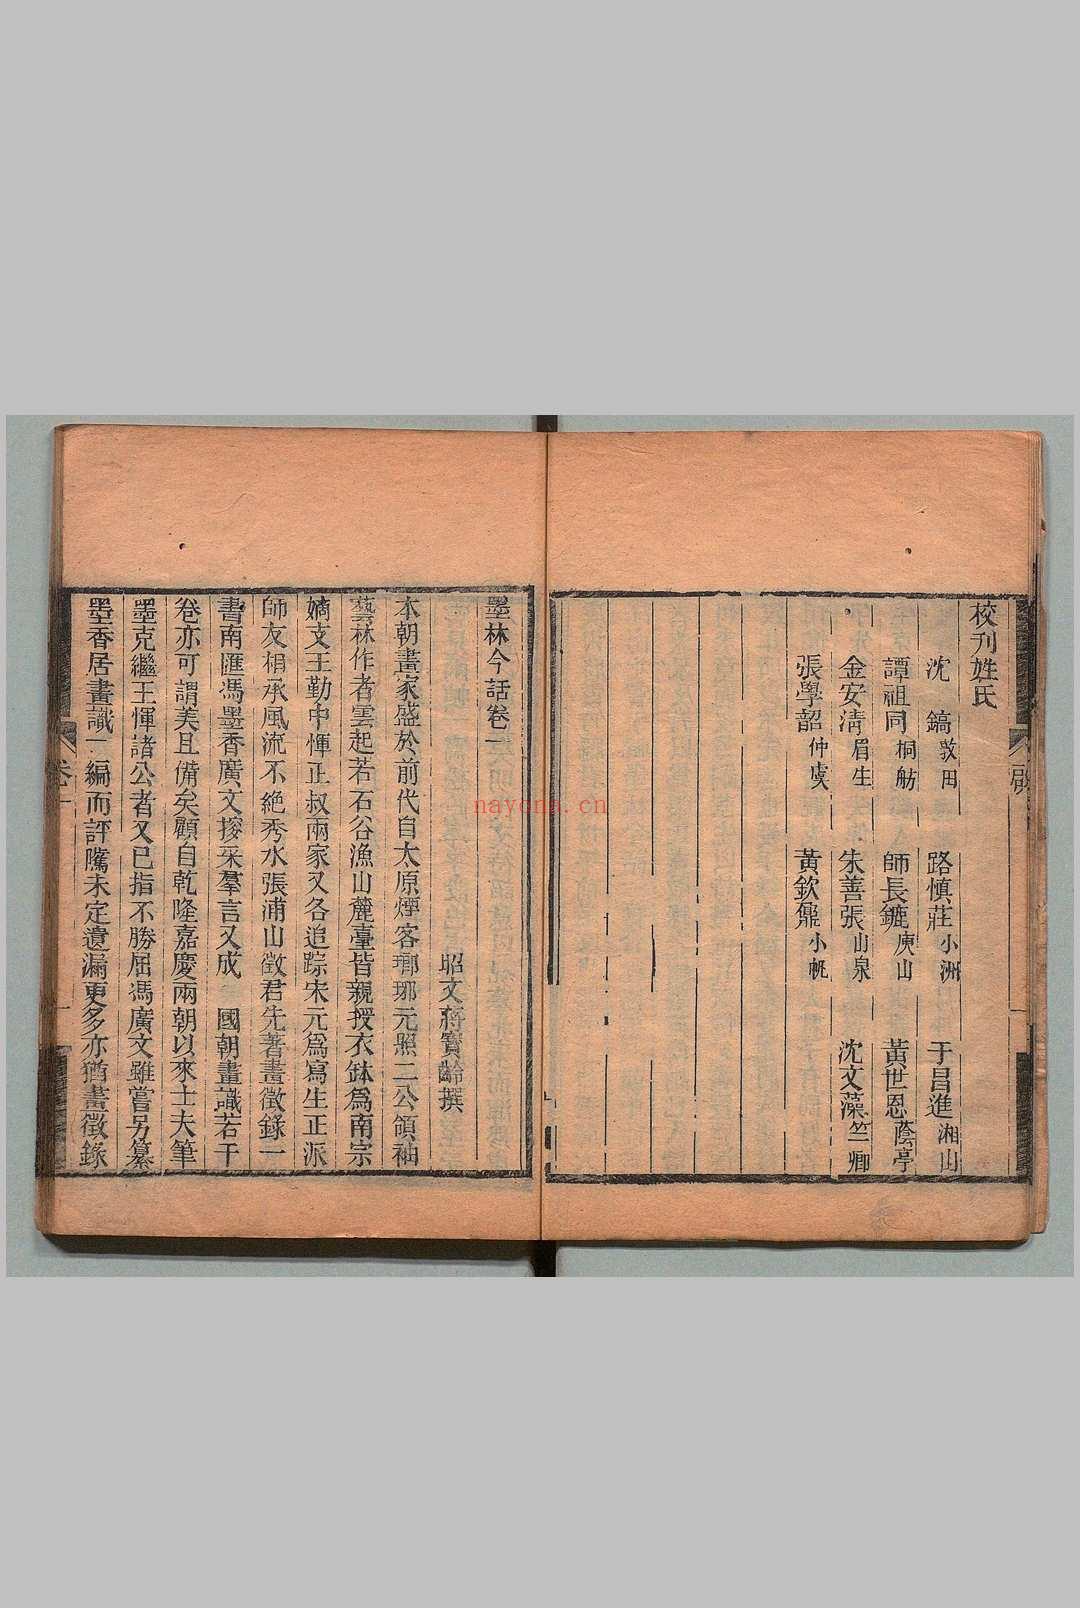 校刊姓氏
沈　鎬敦田　路慎莊小洲　于昌進湘山
譚祖同桐舫　師長鑣庚山　黃世恩蔭亭
金安清眉生　朱善張山泉　沈文藻竺卿
張學韶仲虞　黃欽鼐小帆
墨林今話卷一
昭文蔣寶齡撰
本朝畫家盛於前代自太原煙客瑯琊元照二公領袖
藝林作者雲起若石谷漁山麓臺皆親授衣鉢爲南宗
嫡支王勤中惲正叔兩家又各追踪宋元爲寫生正派
師友相承風流不絶秀水張浦山徵君先著畫徵錄一
書南匯馮墨香廣文搜采羣言又成　國朝畫識若干
卷亦可謂美且備矣顧自乾隆嘉慶兩朝以來士大夫筆
墨克繼王惲諸公者又已指不勝屈馮廣文雖嘗另纂
墨香居畫識一編而評騭未定遺漏更多亦猶畫徵錄
卷一
nayona.cn